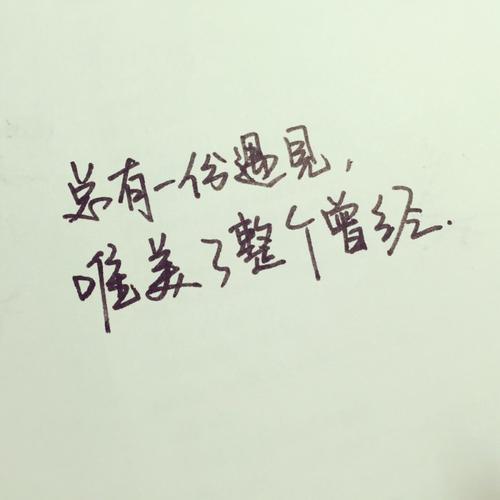 总有一份遇见,
唯美了整个曾经.